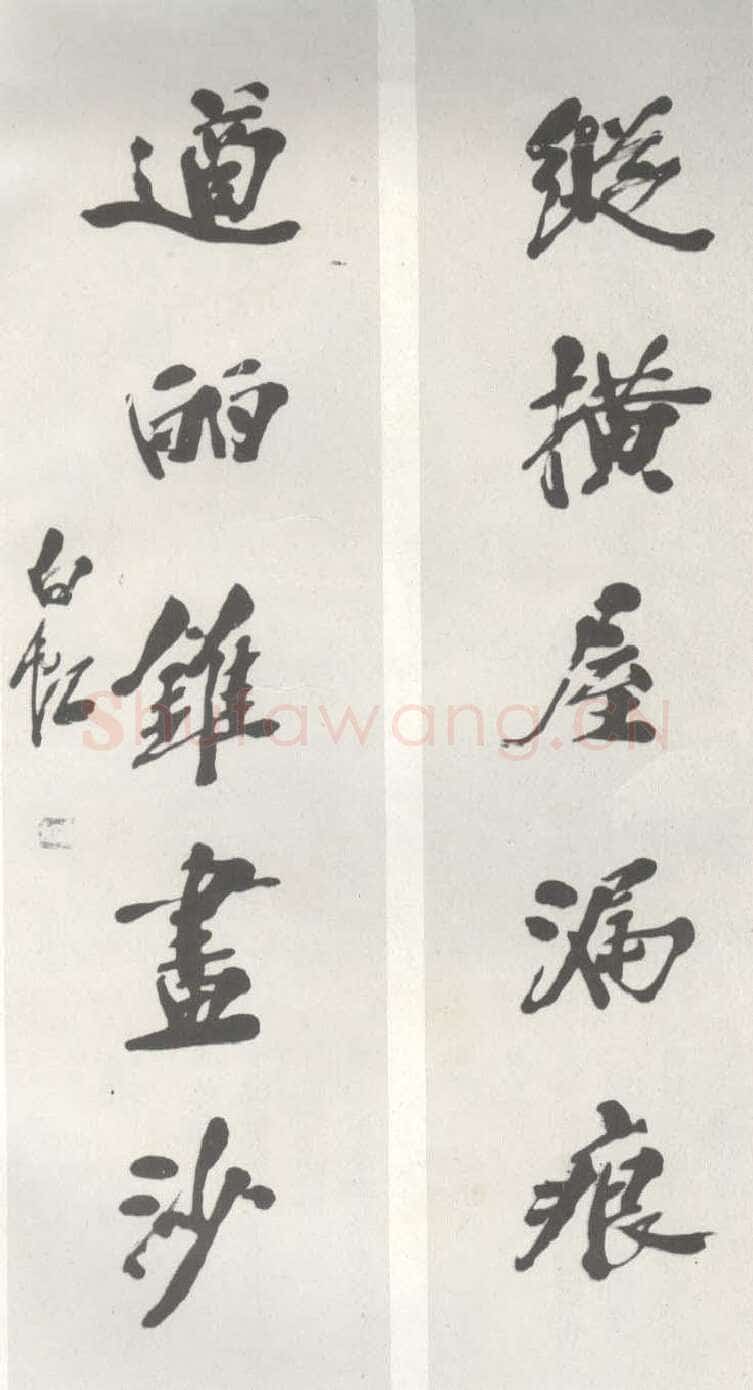 縱橫屋漏痕
遒丽錐畫沙
白蕉
Shufawang.CN